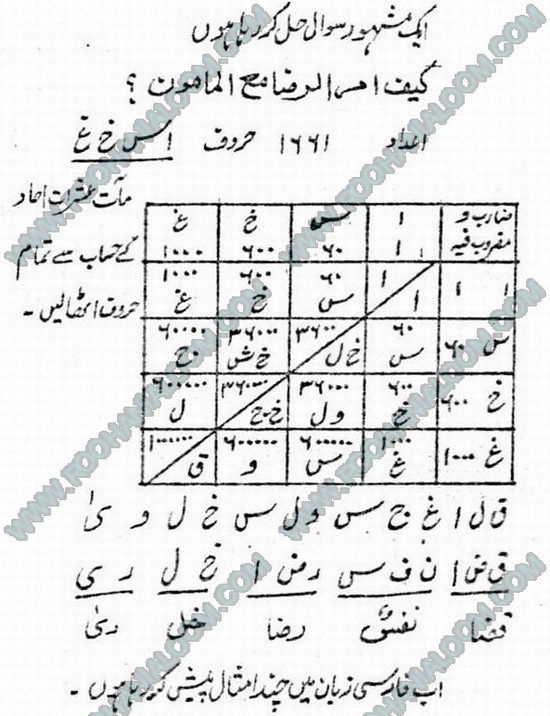 ایک مشہور سوال حل کر رہا ہوں
کیف امر الرضا مع المامون ؟
اعداد ۱۶۶۱ حروف ا س خ غ
مآت عشرات احاد
کے حساب سے تمام
حروف اٹھالیں ۔
ضارب و مضروب فیہ | ا ۱ | س ۶۰ | خ ۶۰۰ | غ ۱۰۰۰
ا ۱ | ۱ ا | ۶۰ س | ۶۰۰ خ | ۱۰۰۰ غ
س ۶۰ | ۶۰ س | ۳۶۰۰ خ ل | ۳۶۰۰۰ خ ش | ۶۰۰۰۰ ج
خ ۶۰۰ | ۶۰۰ خ | ۳۶۰۰۰ و ل | ل
غ ۱۰۰۰ | ۱۰۰۰ غ | س | و | ق
ق ل ا غ ج س و ل س خ ل و ی
ق ض ا ن ف س ر ض ا خ ل ر ی
قضا نفس رضا خلی ری
اب فارسی زبان میں چند امثال پیش کر رہا ہوں ۔
WWW.ROOHANIALOOM.COM